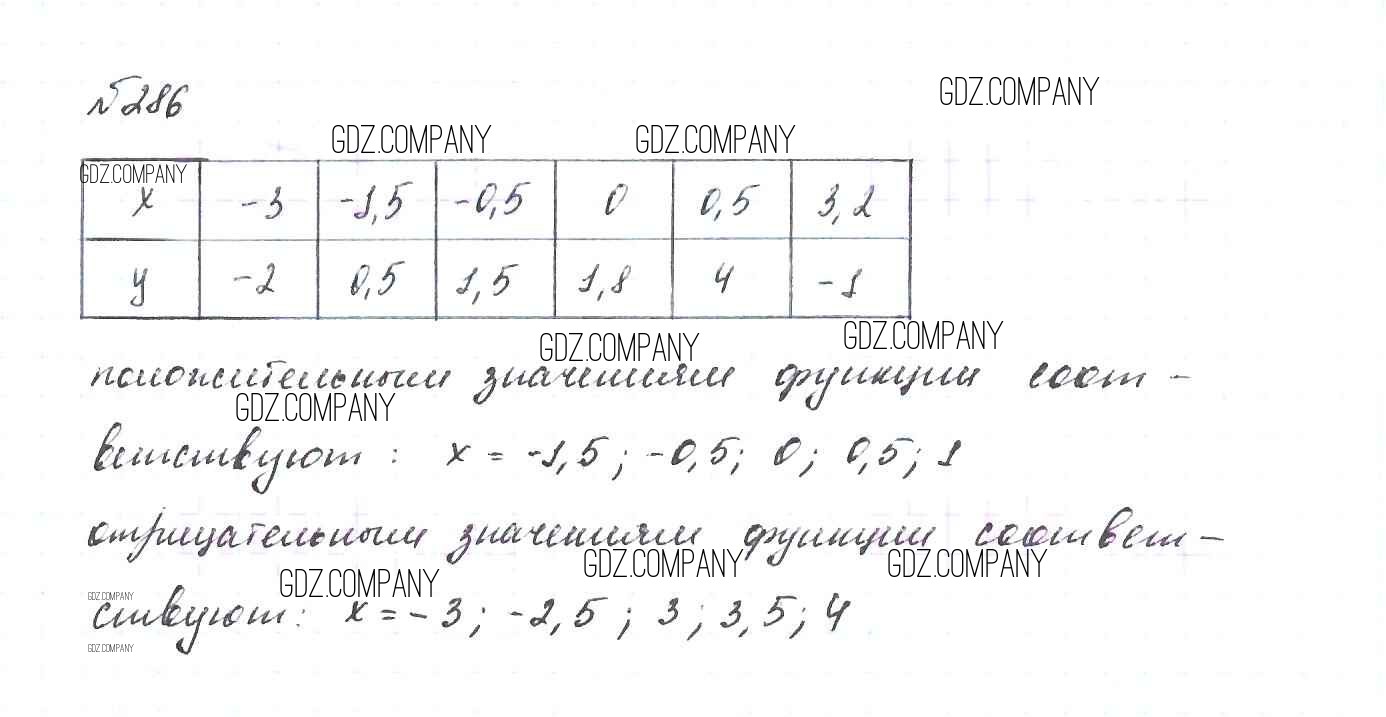 №286
GDZ.COMPANY
GDZ.COMPANY GDZ.COMPANY
GDZ.COMPANY
x -3 -1,5 -0,5 0 0,5 3,2
y -2 0,5 1,5 1,8 4 -1
GDZ.COMPANY GDZ.COMPANY
положительным значениям функции соот-
GDZ.COMPANY
ветствуют: x = -1,5; -0,5; 0; 0,5; 1
отрицательным значениям функции соответ-
GDZ.COMPANY GDZ.COMPANY GDZ.COMPANY
GDZ.COMPANY
ствуют: x = -3; -2,5; 3; 3,5; 4
GDZ.COMPANY